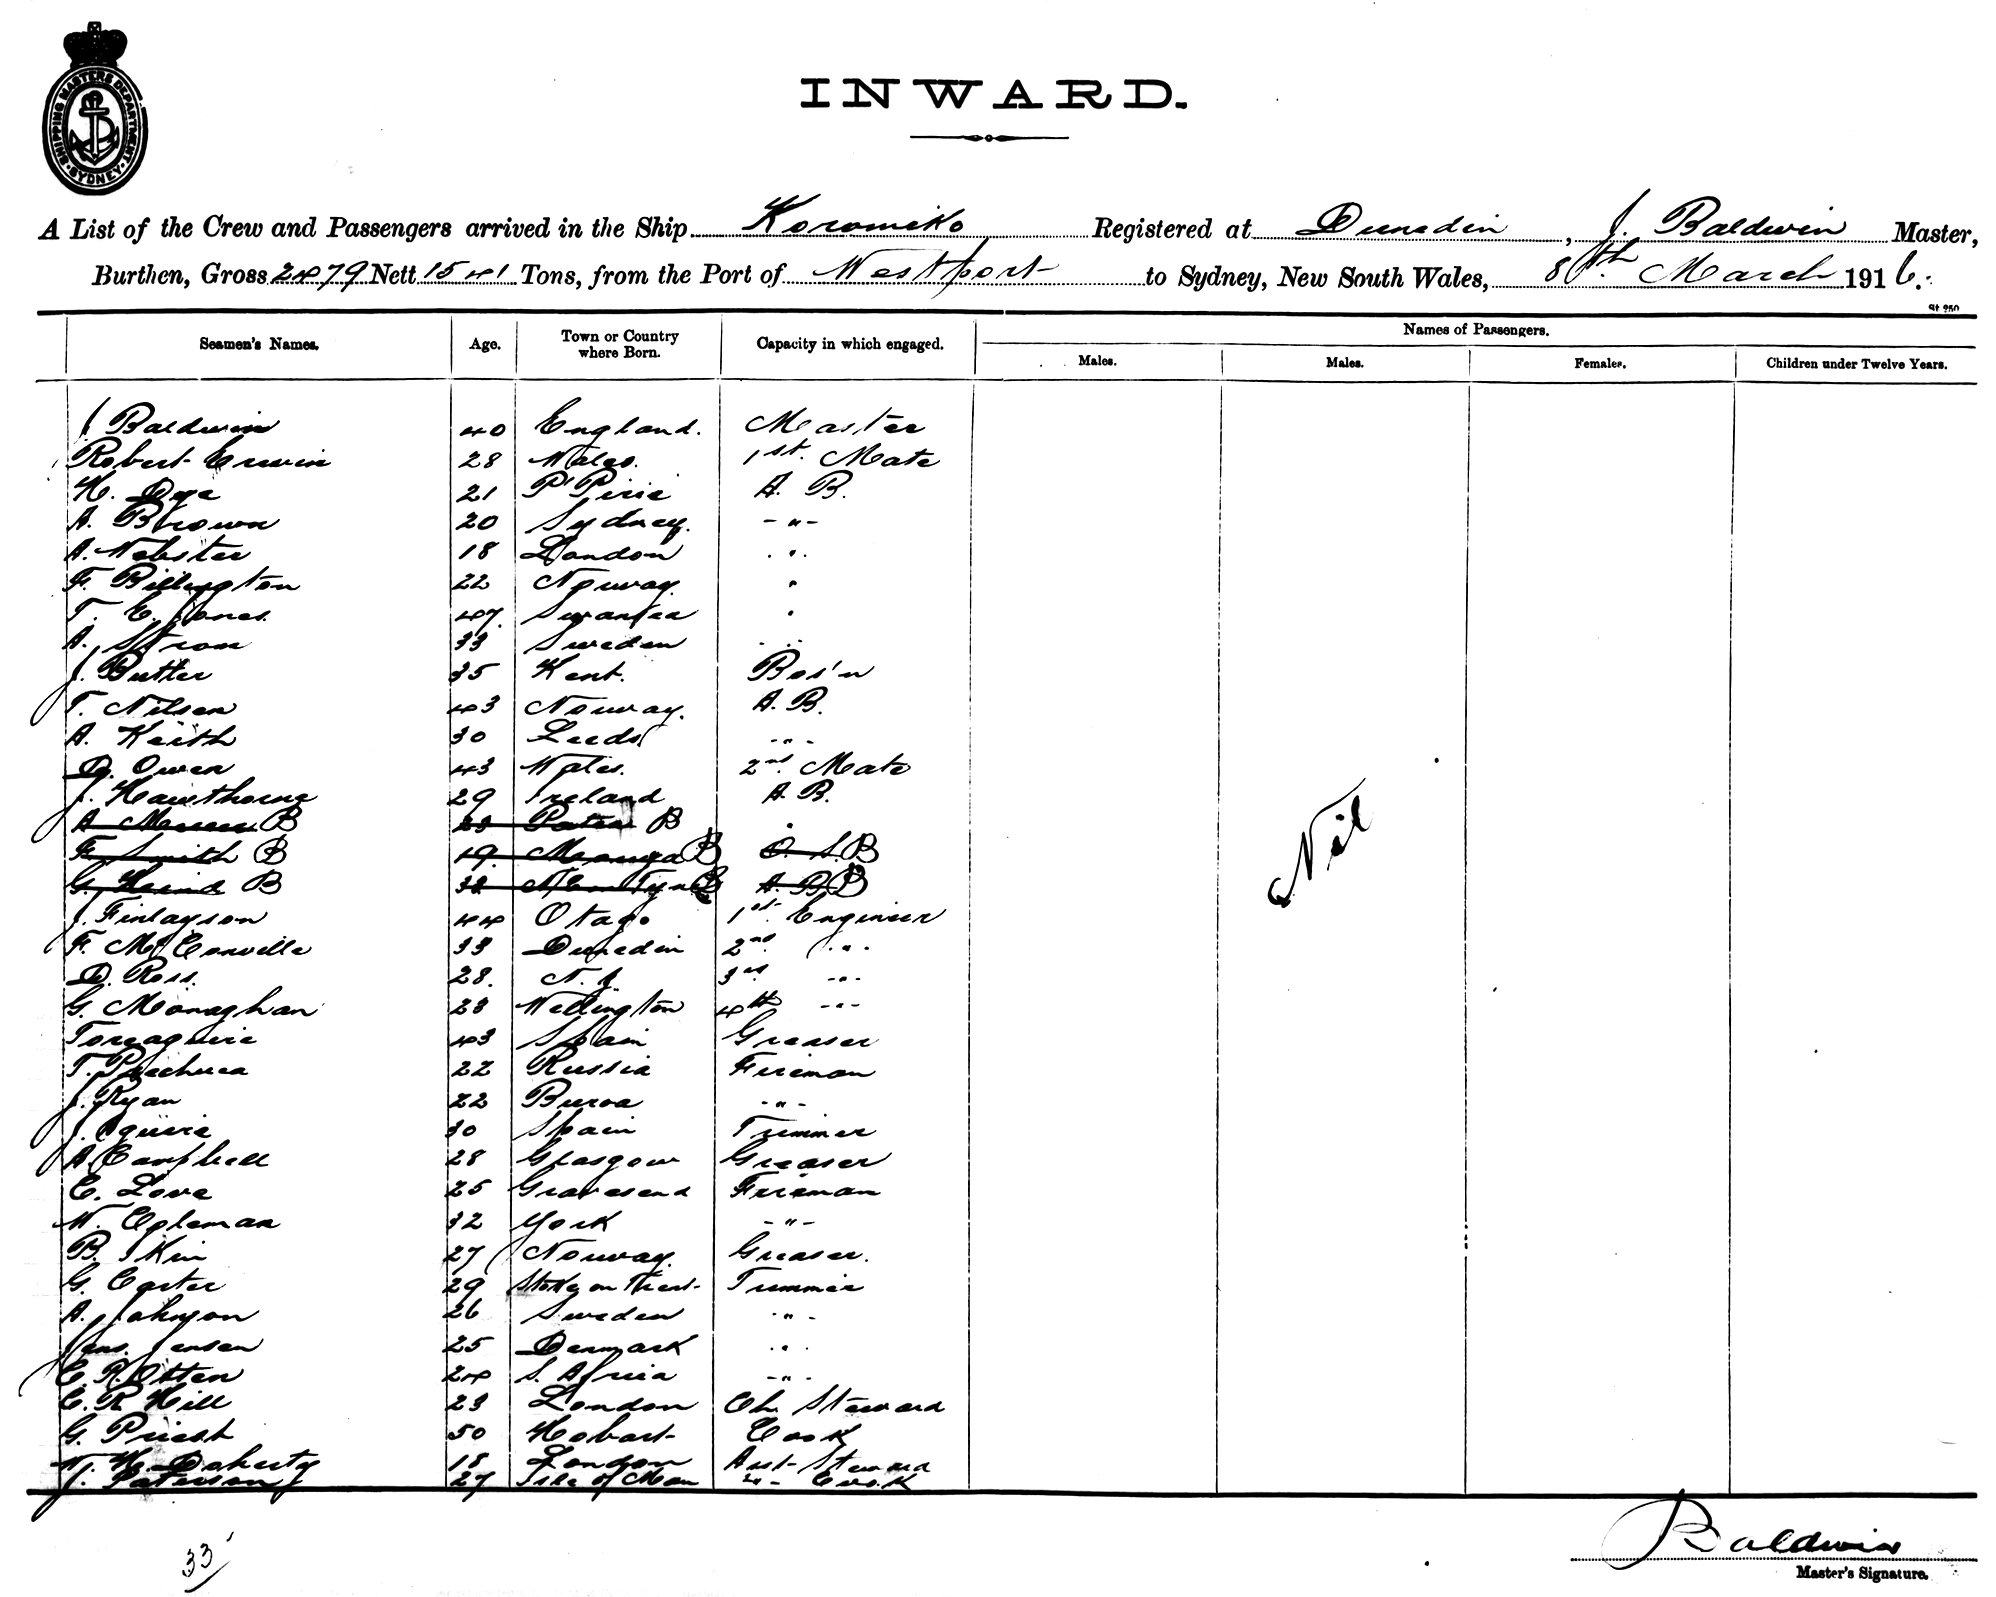 SHIPPING MASTERS DEPARTMENT
SYDNEY
INWARD.
A List of the Crew and Passengers arrived in the Ship Koromiko Registered at Dunedin, J. Baldwin Master,
Burthen, Gross 2479 Nett 1541 Tons, from the Port of Westport to Sydney, New South Wales, 8th March 1916.
St 250
Seamen's Names. Age. Town or Country where Born. Capacity in which engaged. Names of Passengers.
Males. Males. Females. Children under Twelve Years.
J Baldwin 40 England. Master
Robert Erwin 28 Wales. 1st. Mate
H. Dye 21 Pt Pirie A. B.
A. Brown 20 Sydney. - " -
A. Webster 18 London . " .
F. Billington 22 Norway. "
T. E. Jones 47. Swansea "
A. Strom 33 Sweden
J. Butler 35 Kent. Bos'n
T. Nilsen 43 Norway. A. B.
A. Keith 30 Leeds - " -
D. Owen 43 Wales. 2nd. Mate
J. Hawthorne 29 Ireland A. B.
A B 23 B
F. Smith B 19. B O. S. B
G. B A. B B
J. Finlayson 44 Otago 1st. Engineer
F. McConville 33 Dunedin 2nd. - " -
D. Ross. 28. N. Z. 3rd - " -
G. Monaghan 23 Wellington 4th - " -
43 Spain Greaser
T. 22 Russia Fireman
J. Ryan 22 - " -
J. 30 Spain Trimmer
A. Campbell 28 Glasgow Greaser
E. Love 25 Gravesend Fireman
W. 32 York - " -
B. 27 Norway. Greaser.
G. Carter 29 Stoke on Trent Trimmer
A. Johnson 26 Sweden - " -
Jens. Jensen 25 Denmark . " .
C. R. Otten 24 S. Africa - " -
C. R Hill 23 London Ch. Steward
G. Priest 50 Hobart Cook
W. H. Doherty 18 London Asst Steward
J. Paterson 27 Isle of Man - " - Cook
Nil
33
Baldwin
Master's Signature.